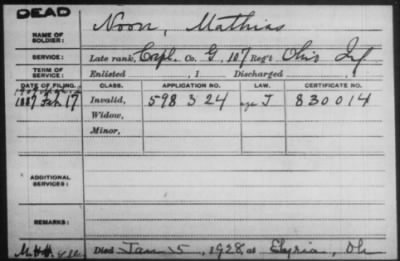 DEAD
NAME OF SOLDIER: Noon, Mathias
SERVICE: Late rank, Corpl. Co. G, 107 Reg't Ohio Inf
TERM OF SERVICE: Enlisted , 1 Discharged , 1
DATE OF FILING. CLASS. APPLICATION NO. LAW. CERTIFICATE NO.
1887 Feb 17 Invalid, 598 324 J 830014
Widow,
Minor,
ADDITIONAL SERVICES:
REMARKS:
Died Jan 5, 1928, at Elyria, Oh